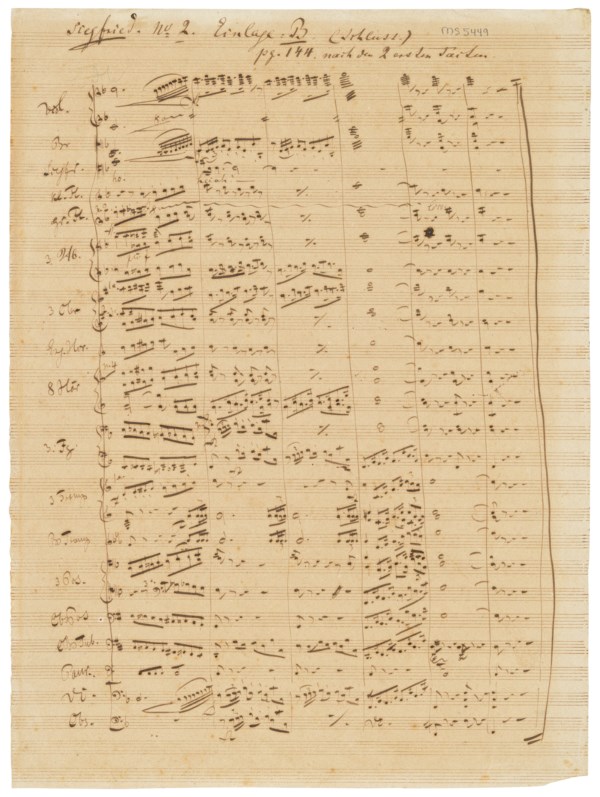 Siegfried. No 2. Einlage B (Schluss.)
MS 5449
pg. 144. nach den 2 ersten Takten
Viol.
Br.
kl. Fl.
gr. Fl.
3 Hb.
3 Clar.
Engl. Hor.
8 Hör
3 Fg.
3 Tromp
Bs Tromp
3 Pos.
CbPos
CbTub.
Pauk.
Vc.
Cbs.